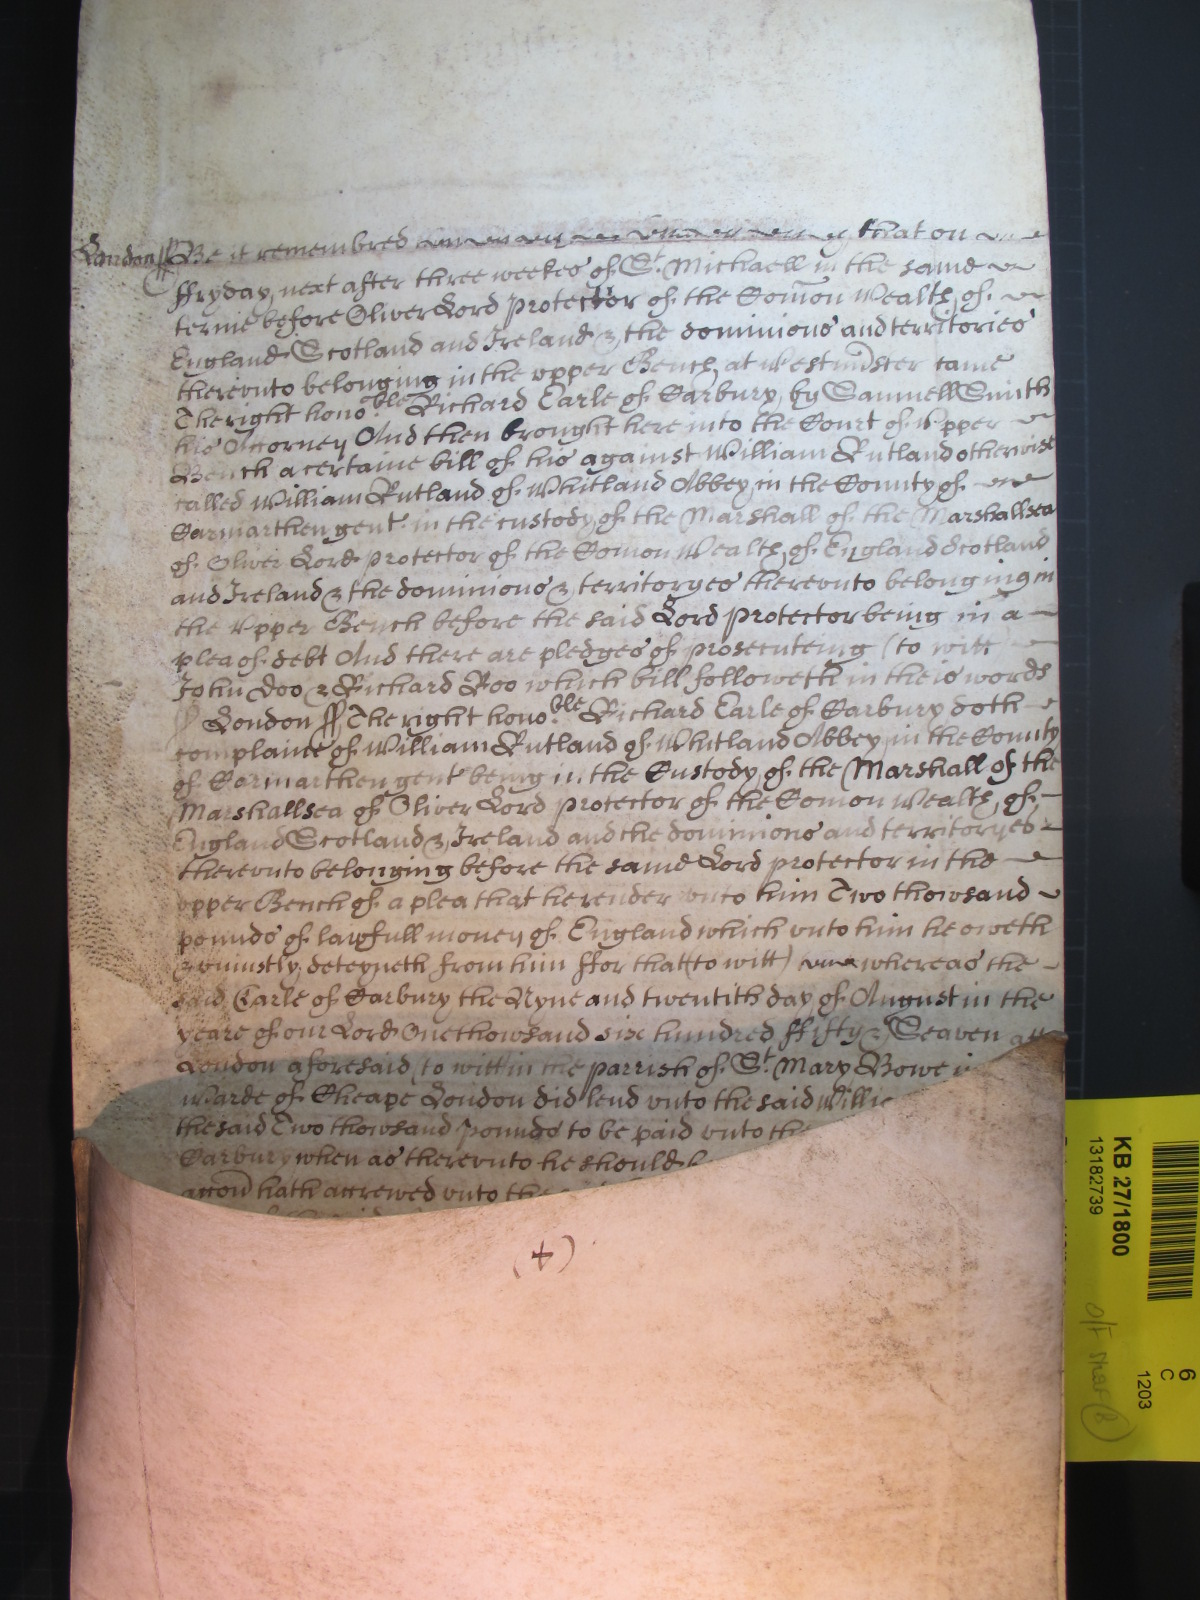 London ss Be it remembred that on
ffryday next after three weekes of St. Michaell in the same
terme before Oliver Lord protector of the Comon Wealth of
England Scotland and Ireland & the dominions and territories
therevnto belonging in the vpper Bench at Westminster came
The right honoble Richard Earle of Carbury by Samuell Smith
his Attorney And then brought here into the Court of Vpper
Bench a certaine bill of his against William Rutland otherwise
called William Rutland of Whitland Abbey in the County of
Carmarthen gent in the custody of the Marshall of the Marshallsea
of Oliver Lord protector of the Comon Wealth of England Scotland
and Ireland & the dominions & territoryes therevnto belonging in
the Vpper Bench before the said Lord protector being in a
plea of debt And there are pledges of prosecuteing (to witt)
John Doo & Richard Roo which bill followeth in theis words
London ss The right honoble Richard Earle of Carbury doth
complaine of William Rutland of Whitland Abbey in the County
of Carmarthen gent being in the Custody of the Marshall of the
Marshallsea of Oliver Lord protector of the Comon Wealth of
England Scotland & Ireland and the dominions and territoryes
therevnto belonging before the same Lord protector in the
vpper Bench of a plea that he render vnto him Two thowsand
pounds of lawfull money of England which vnto him he oweth
& vniustly deteyneth from him ffor that (to witt) whereas the
said Earle of Carbury the Nyne and twentith day of August in the
yeare of our Lord One thowsand six hundred ffifty & Seaven att
London aforesaid (to witt in the parrish of St. Mary Bowe i
Warde of Cheape London did lend vnto the said Willia
the said Two thowsand pounds to be paid vnto the
Carbury when as therevnto he should b
accon hath accrewed vnto the
(4)
KB 27/1800
13182739
6
C
1203